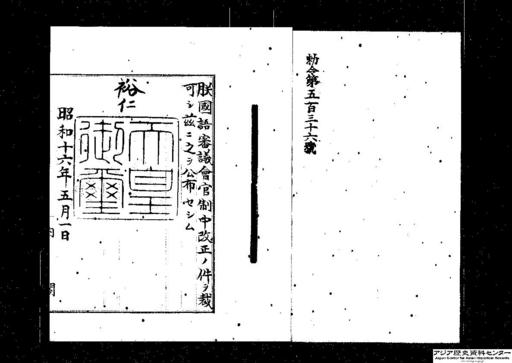 勅令第五百三十六號
朕國語審議會官制中改正ノ件ヲ裁
可シ茲ニ之ヲ公布セシム
裕仁
天皇
御璽
昭和十六年五月一日
アジア歴史資料センター
Japan Center for Asian Historical Records